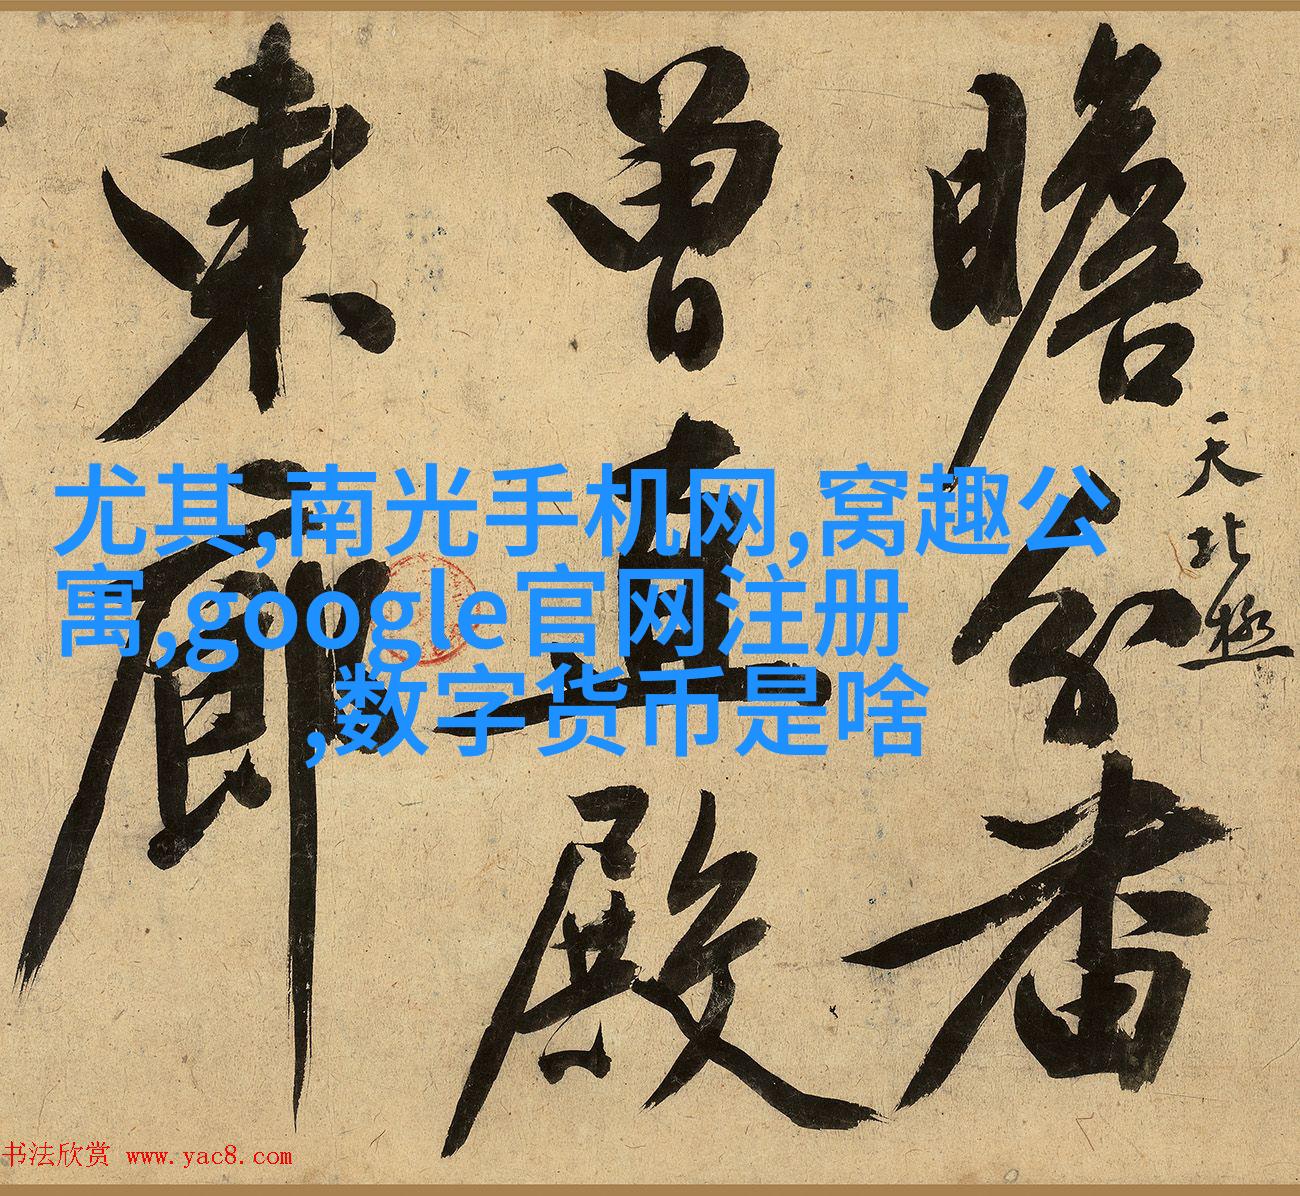 瞻分番
曾直殿
東廊
天北極
尤其,南光手机网,窝趣公
寓,google官网注册
,数字货币是啥
书法欣赏 www.yac8.com